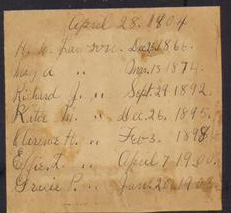 April 28. 1904
H. W. Lawson. Dec 26 1866.
May A „ Mar. 15 1874.
Richard J. „ Sept. 29 1892.
Katie M. „ Dec. 26. 1895.
Clarence H. „ Feb 3. 1898.
Effie I. „ April 7 1900.
Gracie P. „ Jan. 20 1903